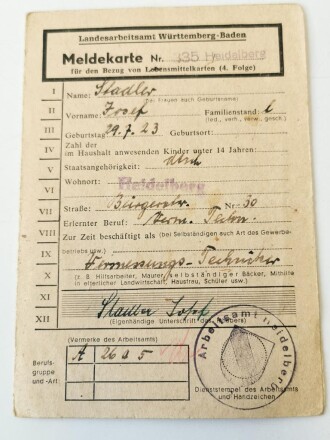 Landesarbeitsamt Württemberg-Baden
Meldekarte Nr. 335 Heidelberg
für den Bezug von Lebensmittelkarten (4. Folge)
I Name: Stadler
(bei Frauen auch Geburtsname)
II Vorname: Josef Familienstand: l
(led., verh., verw., gesch.)
III Geburtstag 29.7.23 Geburtsort:
IV Zahl der
im Haushalt anwesenden Kinder unter 14 Jahren:
V Staatsangehörigkeit:
VI Wohnort: Heidelberg
VII Straße: Bürgerstr. Nr: 30
VIII Erlernter Beruf: Verm. Techn.
IX Zur Zeit beschäftigt als (bei Selbständigen auch Art des Gewerbe-
betriebs usw.)
X Vermessungs-Techniker
(z. B. Hilfsarbeiter, Maurer, selbständiger Bäcker, Mithilfe
in elterlicher Landwirtschaft, Hausfrau, Schüler usw.)
XI
XII Stadler Josef
(Eigenhändige Unterschrift des Inhabers)
(Vermerke des Arbeitsamts)
Berufs-
gruppe
und -Art:
A 26 a 5
Arbeitsamt Heidelberg
Dienststempel des Arbeitsamts
und Handzeichen